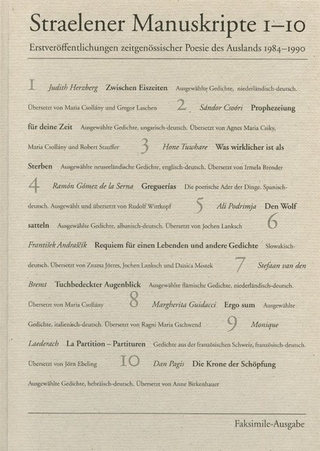 Straelener Manuskripte 1–10
Erstveröffentlichungen zeitgenössischer Poesie des Auslands 1984–1990
1 Judith Herzberg Zwischen Eiszeiten Ausgewählte Gedichte, niederländisch-deutsch.
Übersetzt von Maria Csollány und Gregor Laschen 2 Sándor Csoóri Prophezeiung
für deine Zeit Ausgewählte Gedichte, ungarisch-deutsch. Übersetzt von Agnes Maria Csiky,
Maria Csollány und Robert Stauffer 3 Hone Tuwhare Was wirklicher ist als
Sterben Ausgewählte neuseeländische Gedichte, englisch-deutsch. Übersetzt von Irmela Brender
4 Ramón Gómez de la Serna Greguerías Die poetische Ader der Dinge. Spanisch-
deutsch. Ausgewählt und übersetzt von Rudolf Wittkopf 5 Ali Podrimja Den Wolf
satteln Ausgewählte Gedichte, albanisch-deutsch. Übersetzt von Jochen Lanksch 6
František Andraščík Requiem für einen Lebenden und andere Gedichte Slowakisch-
deutsch. Übersetzt von Zsuzsa Jörens, Jochen Lanksch und Danica Mestek 7 Stefaan van den
Bremt Tuchbedeckter Augenblick Ausgewählte flämische Gedichte, niederländisch-deutsch.
Übersetzt von Maria Csollány 8 Margherita Guidacci Ergo sum Ausgewählte
Gedichte, italienisch-deutsch. Übersetzt von Ragni Maria Gschwend 9 Monique
Laederach La Partition – Partituren Gedichte aus der französischen Schweiz, französisch-deutsch.
Übersetzt von Jörn Ebeling 10 Dan Pagis Die Krone der Schöpfung
Ausgewählte Gedichte, hebräisch-deutsch. Übersetzt von Anne Birkenhauer
Faksimile-Ausgabe